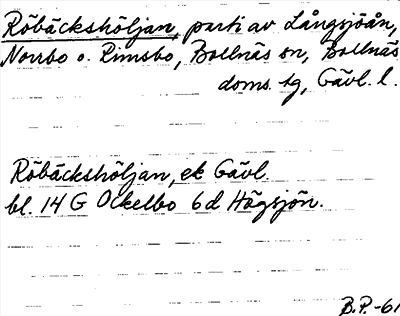 Röbäckshöljan, parti av Långsjöån,
Norrbo o. Rimsbo, Bollnäs sn, Bollnäs
doms. tg, Gävl. l.
Röbäckshöljan, ek Gävl.
bl. 14 G Ockelbo 6d Högsjön.
B.P.-61